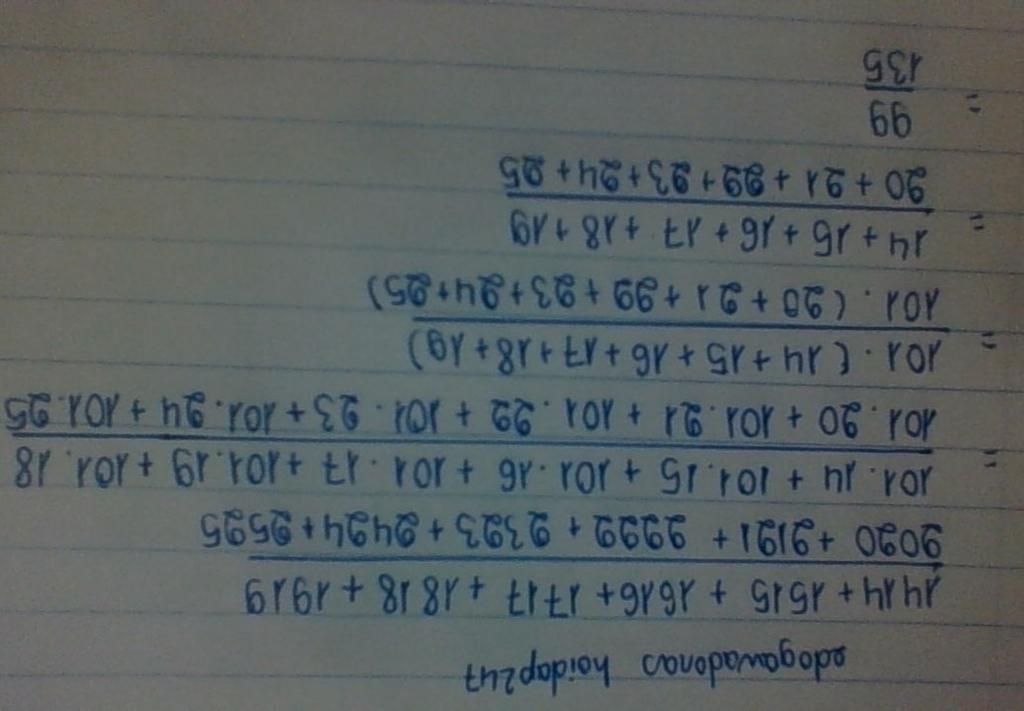 edogawadonas hoidap247
1414 + 1515 + 1616 + 1717 + 1818 + 1919
2020 + 2121 + 2222 + 2323 + 2424 + 2525
= 101.14 + 101.15 + 101.16 + 101.17 + 101.19 + 101.18
101.20 + 101.21 + 101.22 + 101.23 + 101.24 + 101.25
= 101.(14 + 15 + 16 + 17 + 18 + 19)
101.(20 + 21 + 22 + 23 + 24 + 25)
= 14 + 15 + 16 + 17 + 18 + 19
20 + 21 + 22 + 23 + 24 + 25
= 99
135